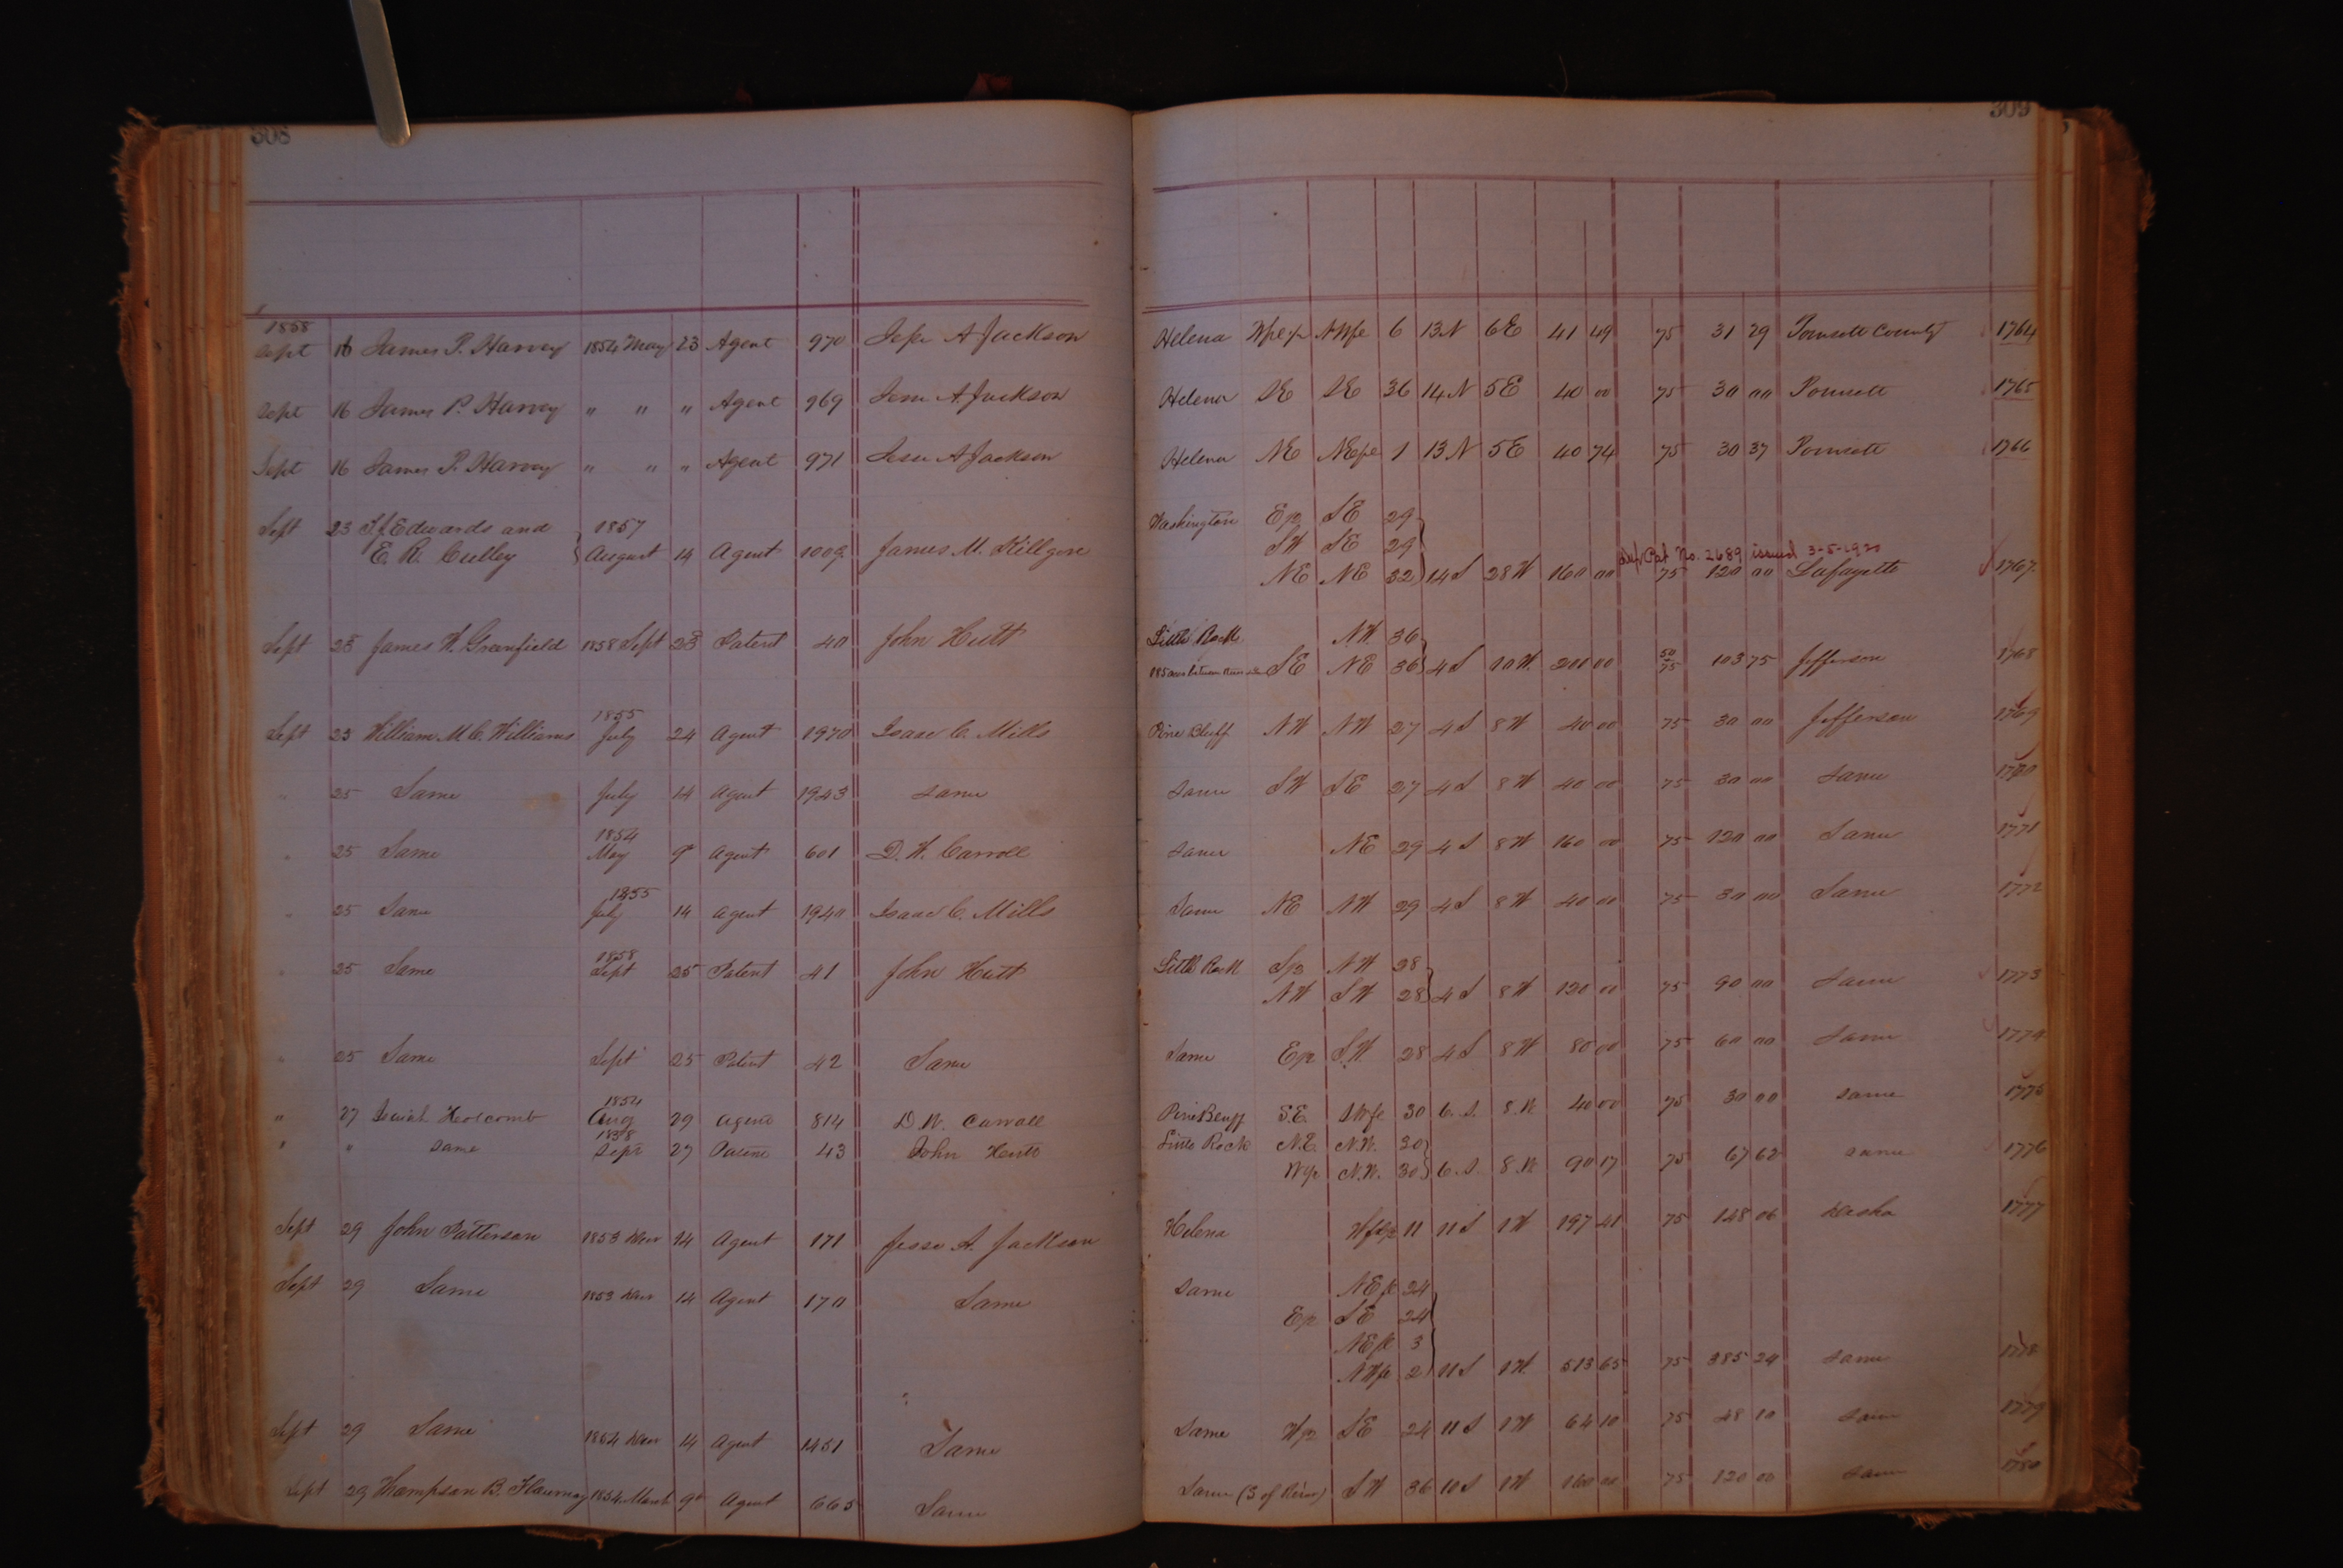 308
309
1858
Sept 16 James P. Harvey 1854 May 23 Agent 970 Jesse A Jackson Helena Wpt NWfr 6 13N 6E 41 49 75 31 29 Poinsett County 1764
Sept 16 James P. Harvey " " " Agent 969 Jesse A. Jackson Helena SE SE 36 14N 5E 40 00 75 30 00 Poinsett 1765
Sept 16 James P. Harvey " " " Agent 971 Jesse A Jackson Helena NE NEfr 1 13N 5E 40 74 75 30 37 Poinsett 1766
Sept 23 Edwards and 1857 Washington Ep SE 29
SW SE 29
Pat No. 2689 issued 3-5-1920
E. R. Culley August 14 Agent 1009 James M. Killgore NE NE 32 14S 28W 160 00 75 120 00 Lafayette 1767
Little Rock NW 36
Sept 23 James W. Greenfield 1858 Sept 23 Patent 40 John Hutt SE NE 36 4S 10W 200 00 50 75 103 75 Jefferson 1768
1855
Sept 25 William M.C. Williams July 24 Agent 1970 Isaac C. Mills Pine Bluff NW NW 27 4S 8W 40 00 75 30 00 Jefferson 1769
" 25 Same July 14 Agent 1943 same same SW SE 27 4S 8W 40 00 75 30 00 same 1770
1854
" 25 Same May 9 Agent 601 D. W. Carroll same NE 29 4S 8W 160 00 75 120 00 Same 1771
1855
" 25 Same July 14 Agent 1940 Isaac C. Mills Same NE NW 29 4S 8W 40 00 75 30 00 Same 1772
1858
" 25 Same Sept 25 Patent 41 John Hutt Little Rock Sp NW 28
NW SW 28 4S 8W 120 00 75 90 00 Same 1773
" 25 Same Sept 25 Patent 42 Same Same Ep SW 28 4S 8W 80 00 75 60 00 Same 1774
1854
" 27 Isaiah Holcomb Aug 29 Agent 814 D. W. Carroll Pine Bluff S.E. SWfr 30 6.S. 8.W 40 00 75 30 00 same 1775
1858
" " same Sept 27 Patent 43 John Hutt Little Rock N.E. N.W. 30
Wp N.W. 30 6.S. 8.W 90 17 75 67 62 same 1776
Sept 29 John Patterson 1853 Decr 14 Agent 171 Jesse A. Jackson Helena 11 11S 1W 197 41 75 148 06 Desha 1777
Sept 29 Same 1853 Decr 14 Agent 170 Same Same NEfr 24
Ep SE 24
NEfr 3
NWfr 2 11S 1W 513 65 75 385 24 same 1778
Sept 29 Same 1854 Decr 14 Agent 1451 Same Same Wp SE 24 11S 1W 64 10 75 48 10 same 1779
Sept 29 Thompson B. Flournoy 1854 March 9 Agent 665 Same Same (S of River) SW 36 10S 1W 160 00 75 120 00 same 1780